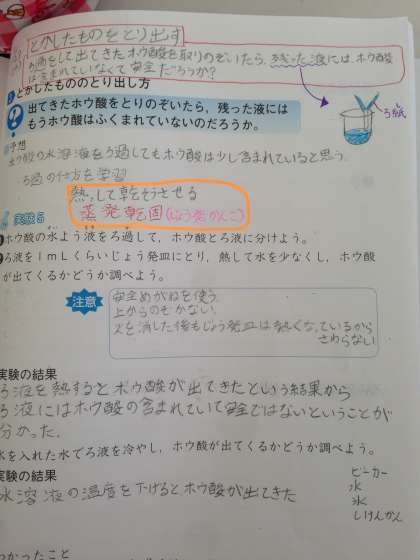 とかしたものをとり出す
ろ過をして出てきたホウ酸を取りのぞいたら、残った液には、ホウ酸
は含まれていなくて安全だろうか?
とかしたもののとり出し方
ろ紙
出てきたホウ酸をとりのぞいたら、残った液には
もうホウ酸はふくまれていないのだろうか。
予想
ホウ酸の水溶液をろ過してもホウ酸は少し含まれていると思う。
ろ過の仕方を学習
熱して乾そうさせる
蒸発乾固(じょう発かんこ)
実験
ホウ酸の水よう液をろ過して、ホウ酸とろ液に分けよう。
ろ液を1mLくらいじょう発皿にとり、熱して水を少なくし、ホウ酸
が出てくるかどうか調べよう。
注意
安全めがねを使う
上からのぞかない
火を消した後もじょう発皿は熱くなっているから
さわらない
実験の結果
ろ液を熱するとホウ酸が出てきたという結果から
ろ液にはホウ酸の含まれていて安全ではないということが
分かった。
氷を入れた水でろ液を冷やし、ホウ酸が出てくるかどうか調べよう。
実験の結果
水溶液の温度を下げるとホウ酸が出てきた
ビーカー
水
氷
しけんかん
わかったこと